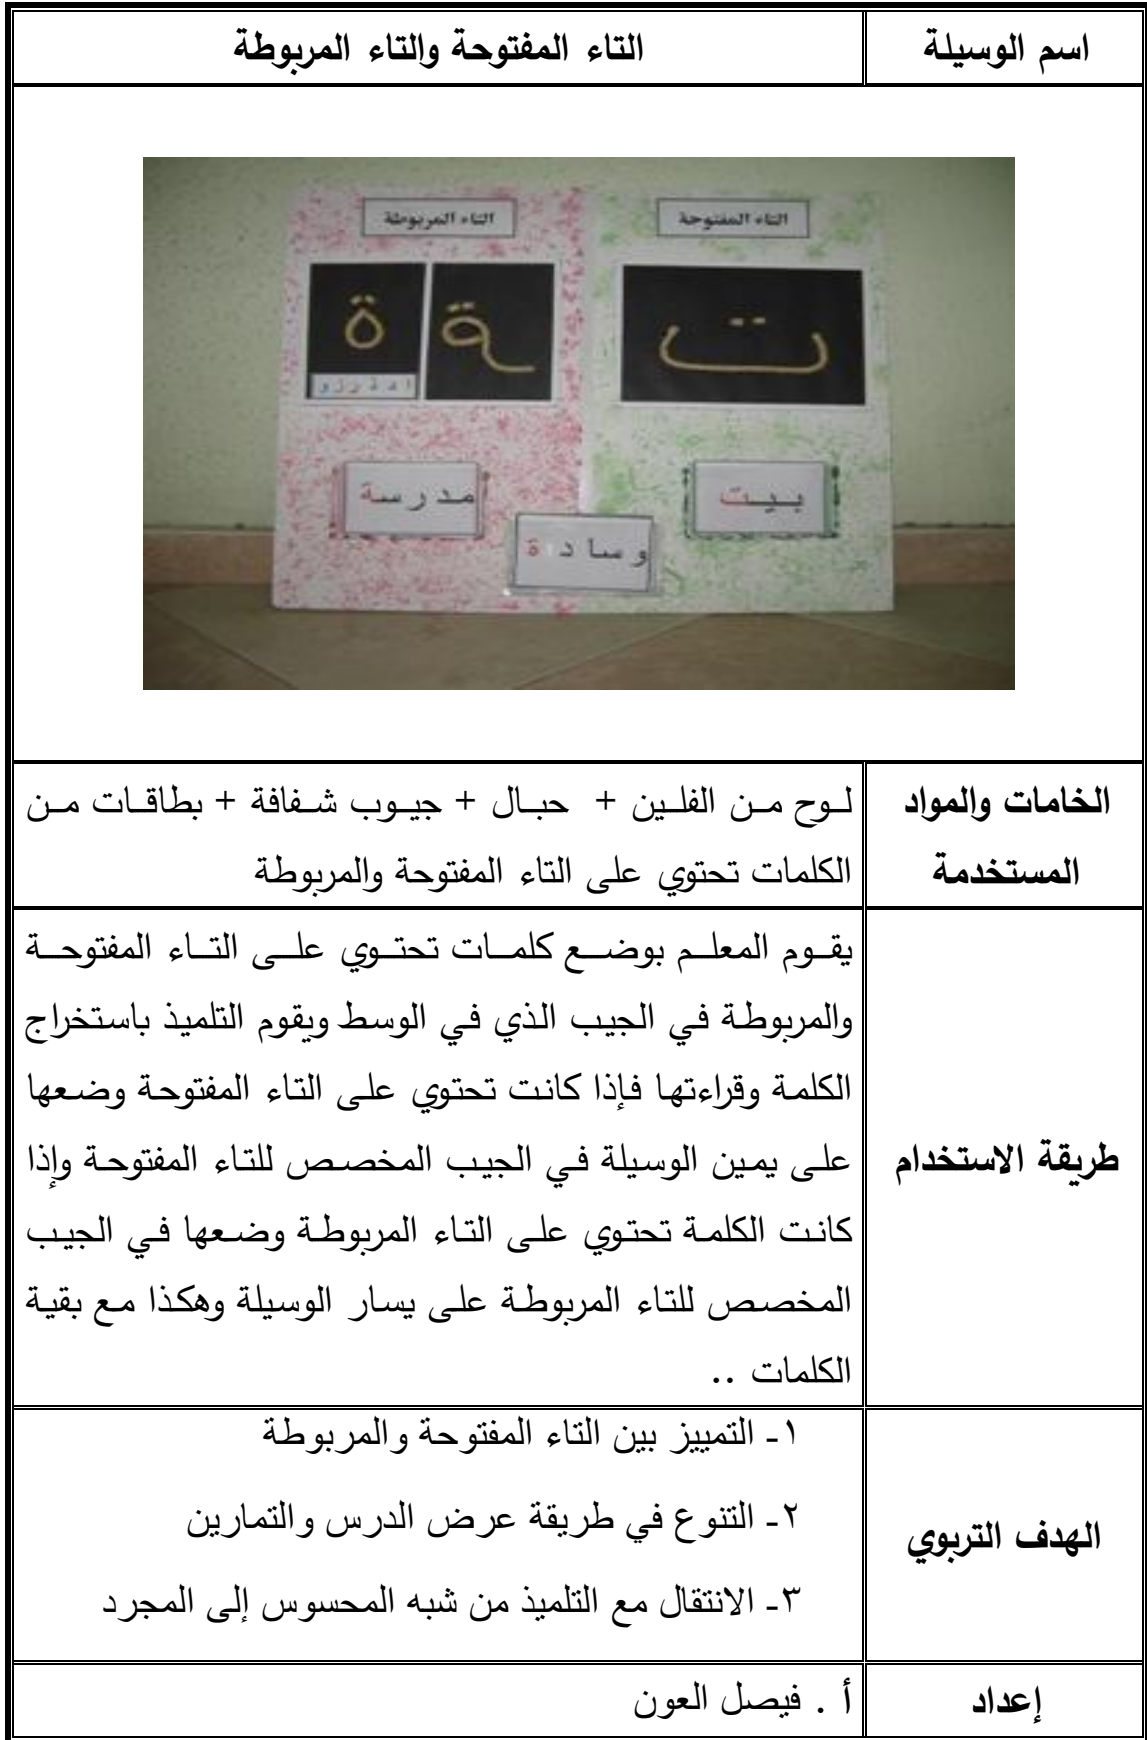 اسم الوسيلة
التاء المفتوحة والتاء المربوطة
التاء المفتوحة
التاء المربوطة
ت
ـة
ة
ا د ذ ر ز و
بيت
مدرسة
وسادة
الخامات والمواد
المستخدمة
لوح من الفلين + حبال + جيوب شفافة + بطاقات من
الكلمات تحتوي على التاء المفتوحة والمربوطة
طريقة الاستخدام
يقوم المعلم بوضع كلمات تحتوي على التاء المفتوحة
والمربوطة في الجيب الذي في الوسط ويقوم التلميذ باستخراج
الكلمة وقراءتها فإذا كانت تحتوي على التاء المفتوحة وضعها
على يمين الوسيلة في الجيب المخصص للتاء المفتوحة وإذا
كانت الكلمة تحتوي على التاء المربوطة وضعها في الجيب
المخصص للتاء المربوطة على يسار الوسيلة وهكذا مع بقية
الكلمات ..
الهدف التربوي
١- التمييز بين التاء المفتوحة والمربوطة
٢- التنوع في طريقة عرض الدرس والتمارين
٣- الانتقال مع التلميذ من شبه المحسوس إلى المجرد
إعداد
أ . فيصل العون